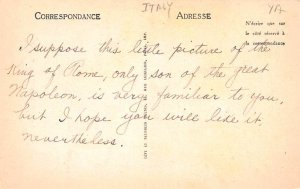 ITALY
CORRESPONDANCE
ADRESSE
N'écrire que sur
le côté réservé à
la correspondance
I suppose this little picture of the
King of Rome, only son of the great
Napoleon, is very familiar to you,
but I hope you will like it
nevertheless.